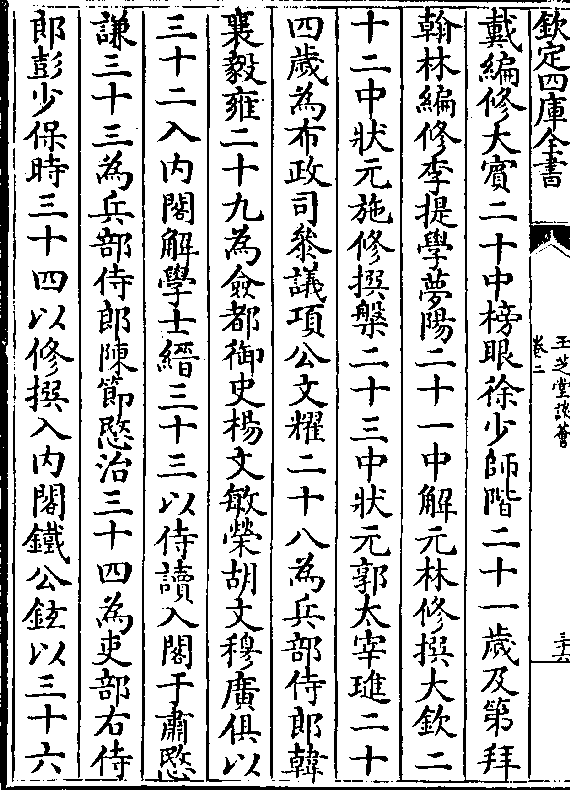 欽定四庫全書
玉芝堂談薈
卷二
三十六
戴編修大賓二十中榜眼徐少師階二十一歲及第拜
翰林編修李提學夢陽二十一中解元林修撰大欽二
十二中狀元施修撰槃二十三中狀元郭太宰璡二十
四歲為布政司參議項公文耀二十八為兵部侍郎韓
襄毅雍二十九為僉都御史楊文敏榮胡文穆廣俱以
三十二入内閣解學士縉三十三以侍讀入閣于肅愍
謙三十三為兵部侍郎陳節愍治三十四為吏部右侍
郎彭少保時三十四以修撰入内閣鐵公鉉以三十六